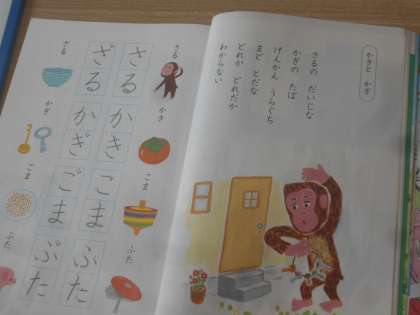 かきと　かぎ
さるの　だいじな
かぎの　たば
げんかん　うらぐち
まど　とだな
どれが　どれだか
わからない
さる
かき
こま
ふた
さる
かき
こま
ふた
ざる
かぎ
ごま
ぶた
ざる
かぎ
ごま
ぶた